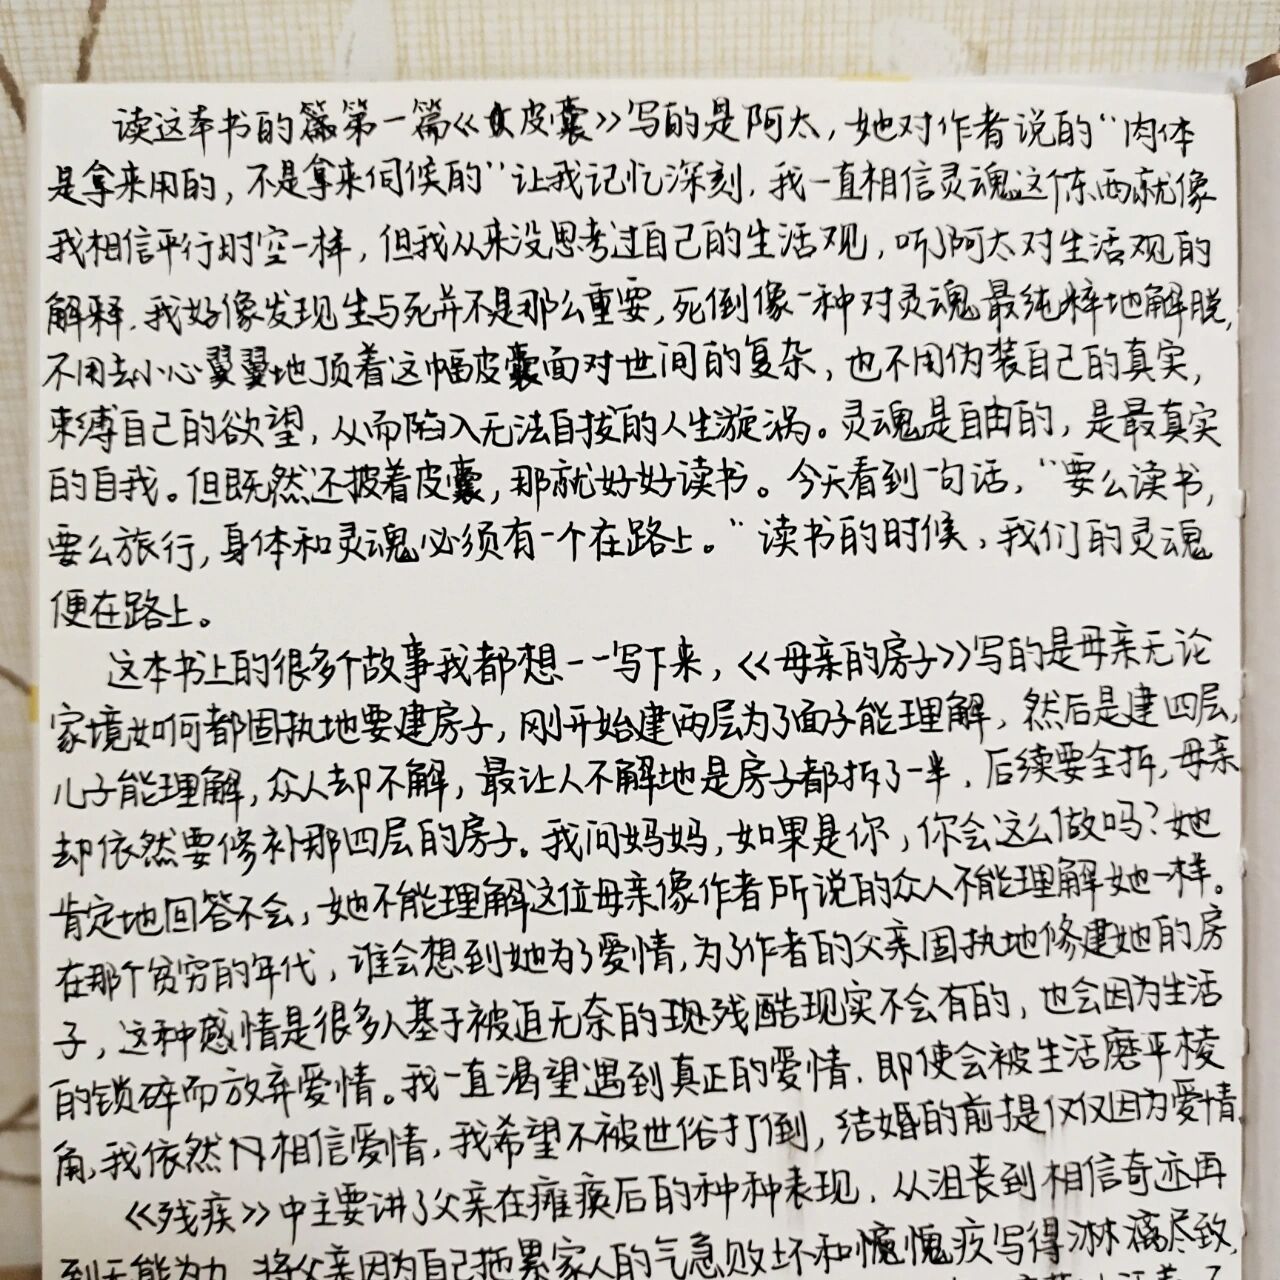 读这本书的第一篇《皮囊》写的是阿太，她对作者说的“肉体
是拿来用的，不是拿来伺候的”让我记忆深刻，我一直相信灵魂这个东西就像
我相信平行时空一样，但我从来没思考过自己的生活观，听了阿太对生活观的
解释，我好像发现生与死并不是那么重要，死倒像一种对灵魂最纯粹地解脱，
不用去小心翼翼地顶着这幅皮囊面对世间的复杂，也不用伪装自己的真实，
束缚自己的欲望，从而陷入无法自拔的人生漩涡。灵魂是自由的，是最真实
的自我。但既然还披着皮囊，那就好好读书。今天看到一句话，“要么读书，
要么旅行，身体和灵魂必须有一个在路上。”读书的时候，我们的灵魂
便在路上。
这本书上的很多个故事我都想一一写下来，《母亲的房子》写的是母亲无论
家境如何都固执地要建房子，刚开始建两层为了面子能理解，然后是建四层，
儿子能理解，众人却不解，最让人不解地是房子都拆了一半，后续要全拆，母亲
却依然要修补那四层的房子。我问妈妈，如果是你，你会这么做吗？她
肯定地回答不会，她不能理解这位母亲像作者所说的众人不能理解她一样。
在那个贫穷的年代，谁会想到她为了爱情，为了作者的父亲固执地修建她的房
子，这种感情是很多人基于被迫无奈的现残酷现实不会有的，也会因为生活
的锁碎而放弃爱情。我一直渴望遇到真正的爱情，即使会被生活磨平棱
角，我依然相信爱情，我希望不被世俗打倒，结婚的前提仅仅因为爱情
《残疾》中主要讲了父亲在瘫痪后的种种表现，从沮丧到相信奇迹再
到无能为力，将父亲因为自己拖累家人的气急败坏和愧疚写得淋漓尽致，